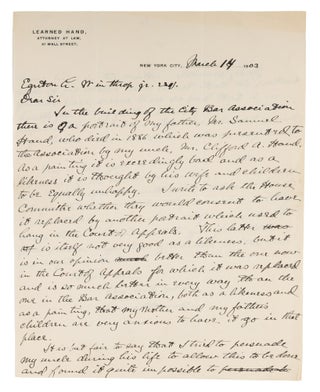 LEARNED HAND,
ATTORNEY AT LAW,
WALL STREET,
NEW YORK CITY, March 14 1903
Egerton L. Winthrop jr. Esq.
Dear Sir
In the building of the City Bar Association
there is a portrait of my father, Mr. Samuel
Hand, who died in 1886 which was presented to
the association by my uncle, Mr. Clifford A. Hand.
As a painting it is exceedingly bad and as a
likeness it is thought by his wife and children
to be equally unhappy. I write to ask the House
Committee whether they would consent to have
it replaced by another portrait which used to
hang in the Court of Appeals. This latter
is itself not very good as a likeness, but it
is in our opinion better than the one now
in the Court of Appeals for which it was replaced
and is so much better in every way than the
one in the Bar Association, both as a likeness and
as a painting, that my mother and my father's
children are very anxious to have it go in that
place.
It is but fair to say that I tried to persuade
my uncle during his life to allow this to be done
and found it quite impossible to persuade